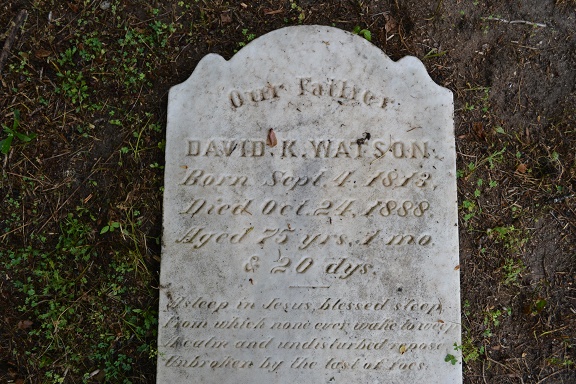 Our Father
DAVID K. WATSON
Born Sept. 4, 1813,
Died Oct. 24, 1888.
Aged 75 yrs, 1 mo.
& 20 dys.
Asleep in Jesus, blessed sleep
From which none ever wake to weep
A calm and undisturbed repose
Unbroken by the last of foes.